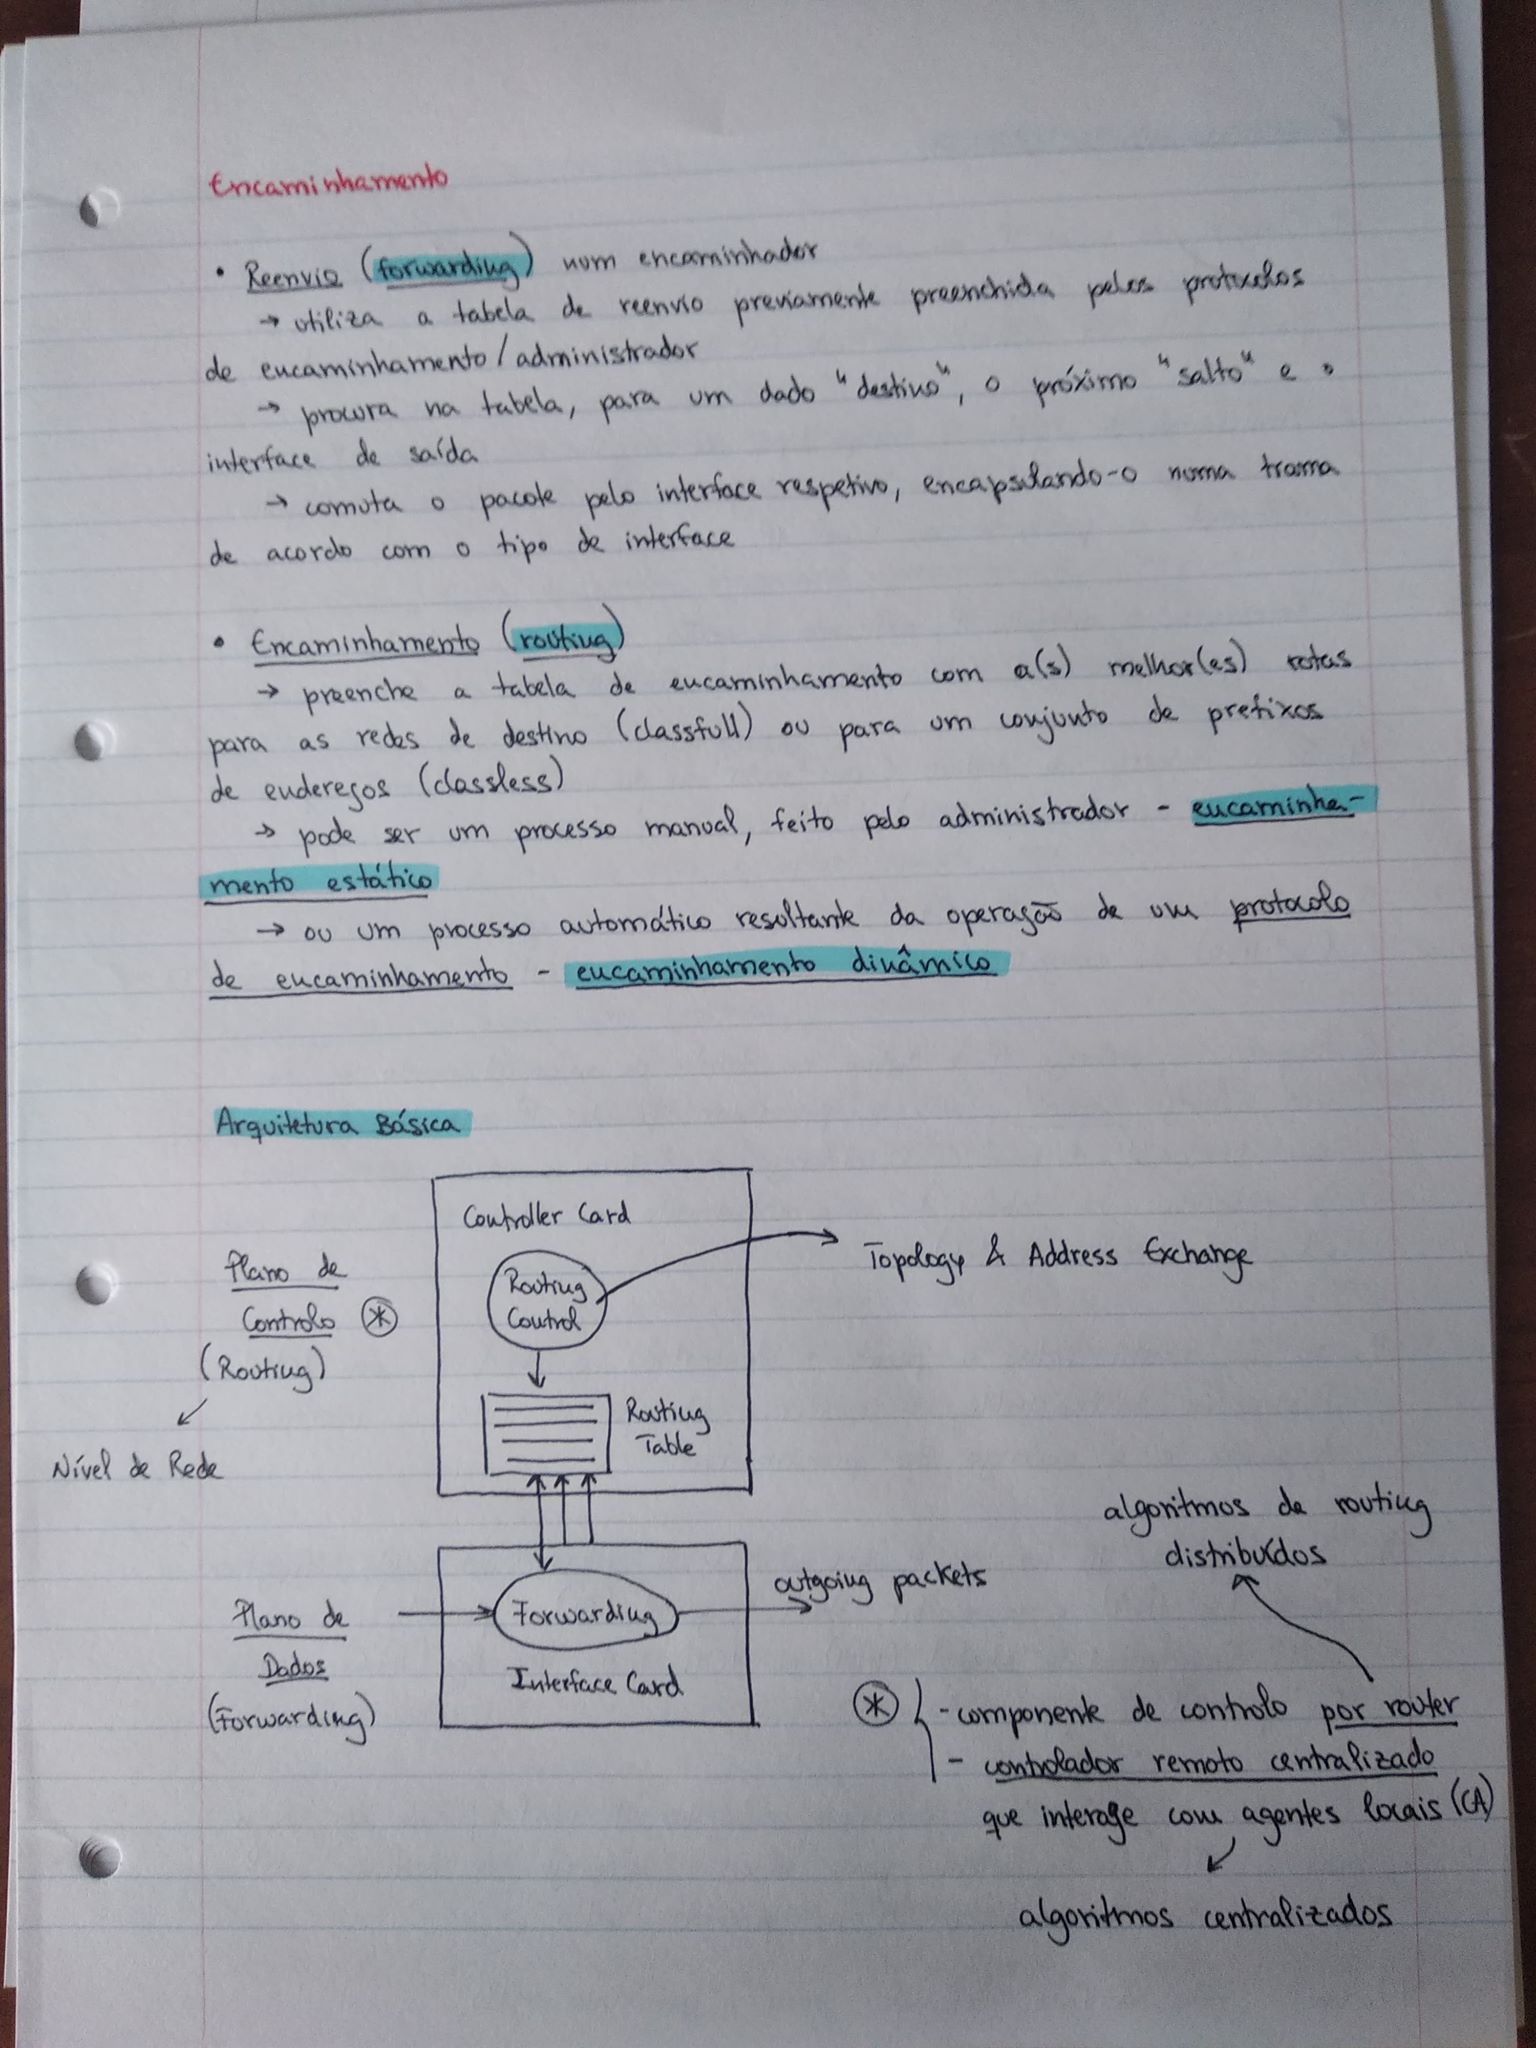 Encaminhamento
• Reenvio (forwarding) num encaminhador
→ utiliza a tabela de reenvio previamente preenchida pelos protocolos
de encaminhamento/administrador
→ procura na tabela, para um dado "destino", o próximo "salto" e o
interface de saída
→ comuta o pacote pelo interface respetivo, encapsulando-o numa trama
de acordo com o tipo de interface
• Encaminhamento (routing)
→ preenche a tabela de encaminhamento com a(s) melhor(es) rotas
para as redes de destino (classfull) ou para um conjunto de prefixos
de endereços (classless)
→ pode ser um processo manual, feito pelo administrador - encaminha-
mento estático
→ ou um processo automático resultante da operação de um protocolo
de encaminhamento - encaminhamento dinâmico
Arquitetura Básica
Controller Card
Routing
Control
Topology & Address Exchange
Plano de
Controlo *
(Routing)
Nível de Rede
Routing
Table
algoritmos de routing
distribuídos
outgoing packets
Plano de
Dados
(Forwarding)
Forwarding
Interface Card
* - componente de controlo por router
- controlador remoto centralizado
que interage com agentes locais (CA)
algoritmos centralizados